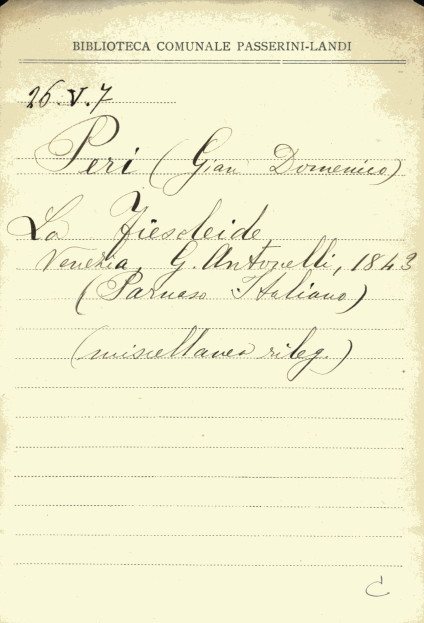 BIBLIOTECA COMUNALE PASSERINI-LANDI
26.V.7
Peri (Gian Domenico)
La Fiesoleide
Venezia, G. Antonelli, 1843
(Parnaso Italiano)
(miscellanea rileg.)
C